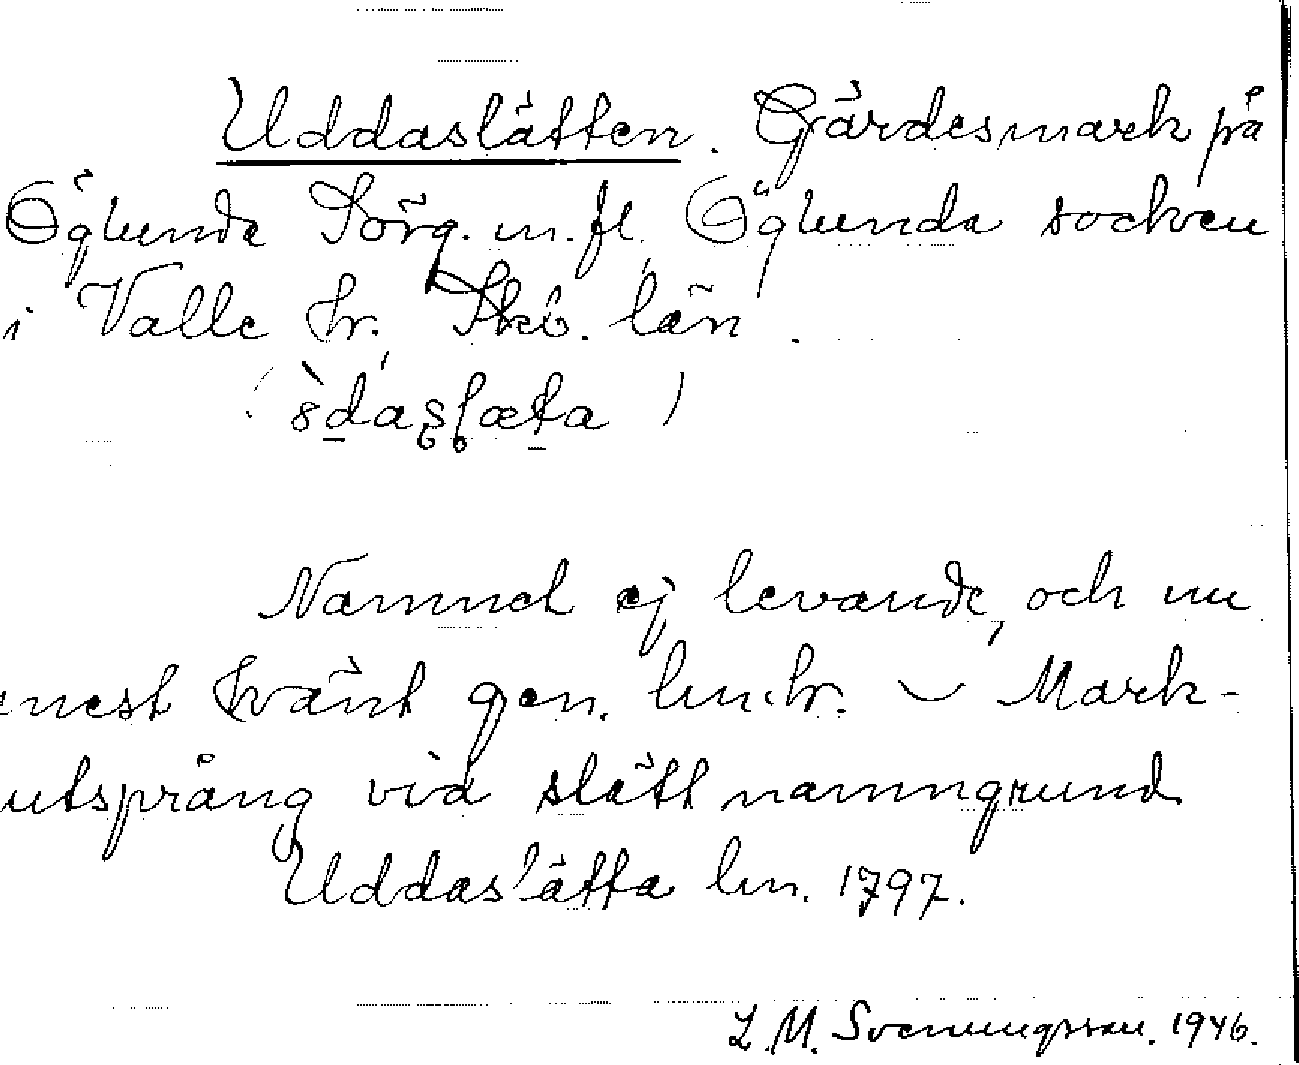 Uddaslätten. Gärdesmark på
Öglunda Sörg. m. fl. Öglunda socken
i Valle hr. Skb. län.
Namnet ej levande, och nu
enest hvänt gen. lm. hr. – Mark-
utsprång vid slätt namngrund
Uddaslätta lm. 1797.
L. M. Svenungsson. 1946.